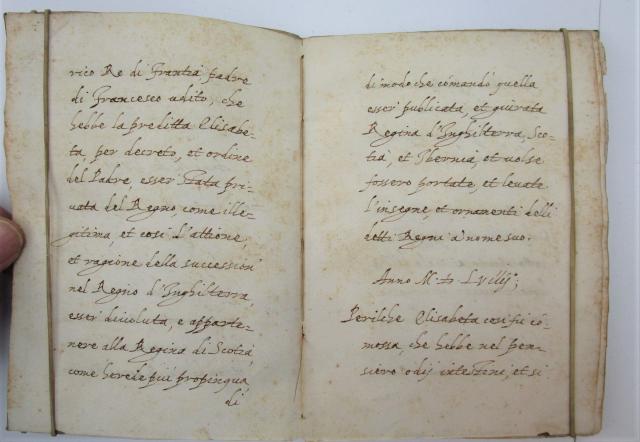 rico Re di Frantia padre
di Francesco udito, che
hebbe la preditta Elisabe-
ta, per decreto, et ordine
del Padre, esser stata pri-
uata del Regno, come ille-
gitima, et cosi l'attione,
et ragione della succession
nel Regno d'Inghilterra,
esser diuoluta, e apparte-
nere alla Regina di Scotia,
come herede piú propinqua,
di
di modo che comandò quella
esser publicata, et giurata
Regina d'Inghilterra, Sco-
tia, et Ibernia, et uolse
fossero portate, et leuate
l'insegne, et ornamenti delli
detti Regni à nome suo.
Anno M. D. LVIIIJ;
Perilche Elisabeta cosi fù cõ-
mossa, che hebbe nel pen-
siero odij intestine, et si